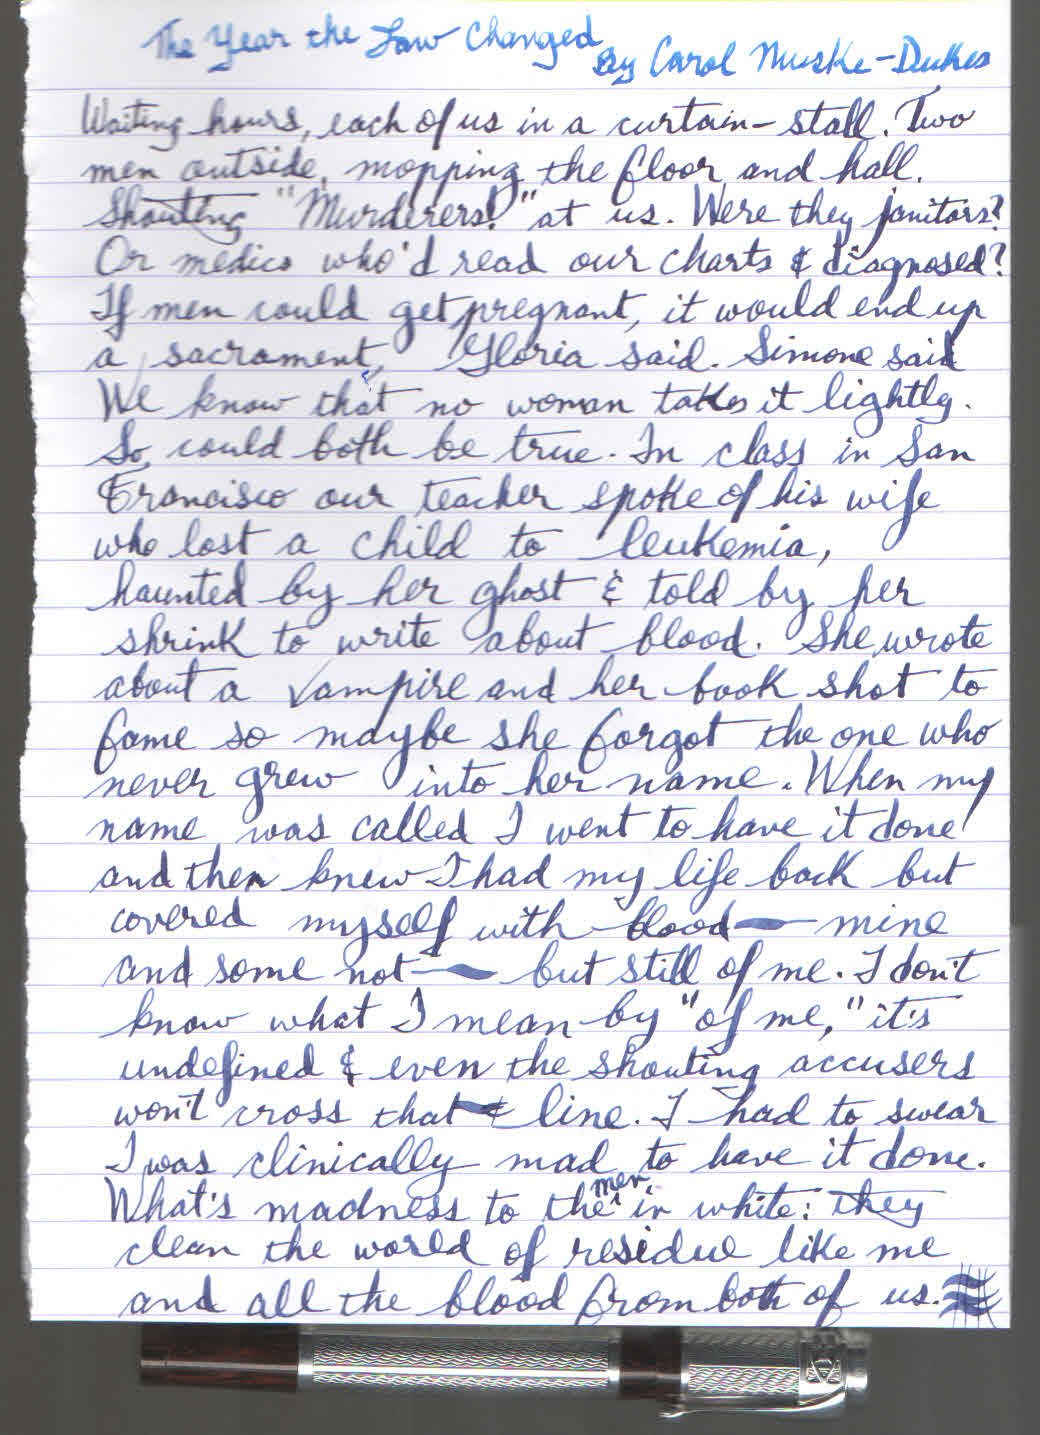 The Year the Law Changed
By Carol Muske-Dukes
Waiting hours, each of us in a curtain-stall. Two
men outside, mopping the floor and hall.
Shouting "Murderers!" at us. Were they janitors?
Or medics who'd read our charts & diagnosed?
If men could get pregnant, it would end up
a sacrament, Gloria said. Simone said
We know that no woman takes it lightly.
So, could both be true. In class in San
Francisco our teacher spoke of his wife
who lost a child to leukemia,
haunted by her ghost & told by her
shrink to write about blood. She wrote
about a vampire and her book shot to
fame so maybe she forgot the one who
never grew into her name. When my
name was called I went to have it done
and then knew I had my life back but
covered myself with blood — mine
and some not — but still of me. I don't
know what I mean by "of me," it's
undefined & even the shouting accusers
won't cross that line. I had to swear
I was clinically mad to have it done.
What's madness to the men in white: they
clean the world of residue like me
and all the blood from both of us.